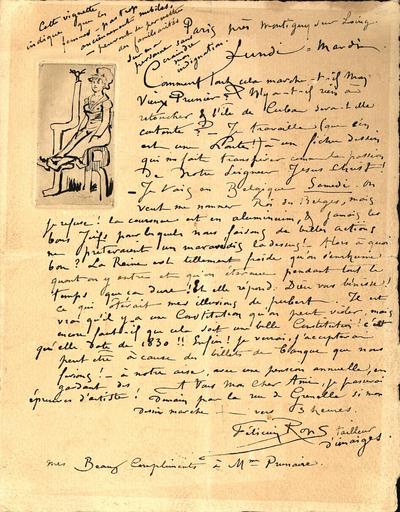 Cette vignette
indique que les
femmes pas trop nubiles
anciennement
peuvent se permettre
des familiarités
sur ma
personne sans
craindre
mon
indignation.
Paris près Montigny sur Loing
Lundi - Mardi
Comment tout cela marche-t-il Mon
Vieux Prunaire? N'y a-t-il rien à
retoucher & l'île de Cuba sera-t-elle
contente? - Je travaille (que c'en
est une Porte!) à un fichu dessin
qui me fait transpirer comme la passion
de Notre Seigneur Jésus Christ!
- Je vais en Belgique Samedi. On
veut me nommer Roi des Belges, mais
je refuse! la couronne est en aluminium, & jamais les
bons Juifs pour lesquels nous faisons de belles actions
ne prêteraient un maravedis là dessus! Alors à quoi
bon? La Reine est tellement froide qu'on s'enrhume
quand on y entre et qu'on éternue pendant tout le
temps que ça dure! Et elle répond: Dieu vous bénisse!!
ce qui ôterait mes illusions de puberté. Il est
vrai qu'il y a une Constitution qu'on peut violer, mais
encore faut-il que cela soit une belle Constitution! & c'est
qu'elle date de 1830!! Enfin! je verrai, j'accepterai
peut être à cause des billets de banque que nous
ferions! - à notre aise, avec une pension annuelle, en
gardant des
épreuves d'artiste! A Vous mon cher Ami, je passerai
demain par la rue de Grenelle si mon
dessin marche - vers 3 heures.
Félicien Rops
tailleur
d'images.
mes Beaux Compliments à Mme Prunaire.